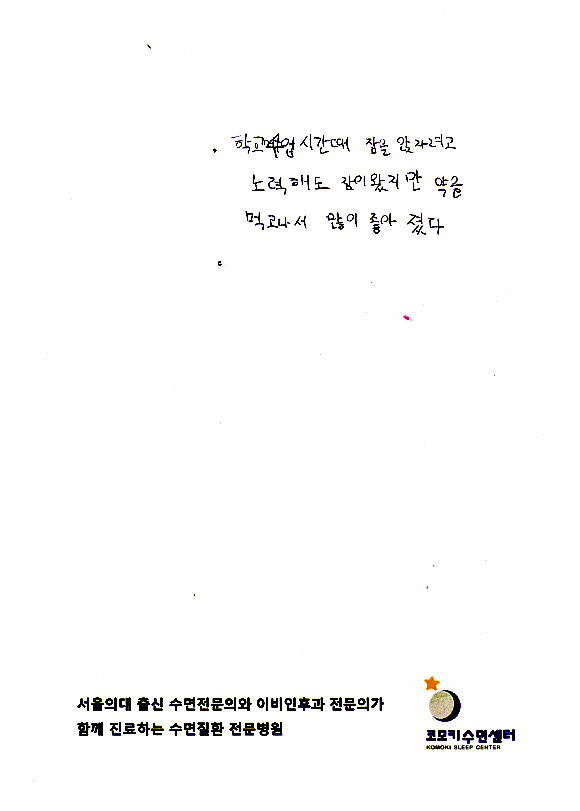 . 학교수업시간때 잠을 않자려고
노력해도 잠이왔지만 약을
먹고나서 많이 좋아 졌다
서울의대 출신 수면전문의와 이비인후과 전문의가
함께 진료하는 수면질환 전문병원
코모키수면센터
KOMOKI SLEEP CENTER